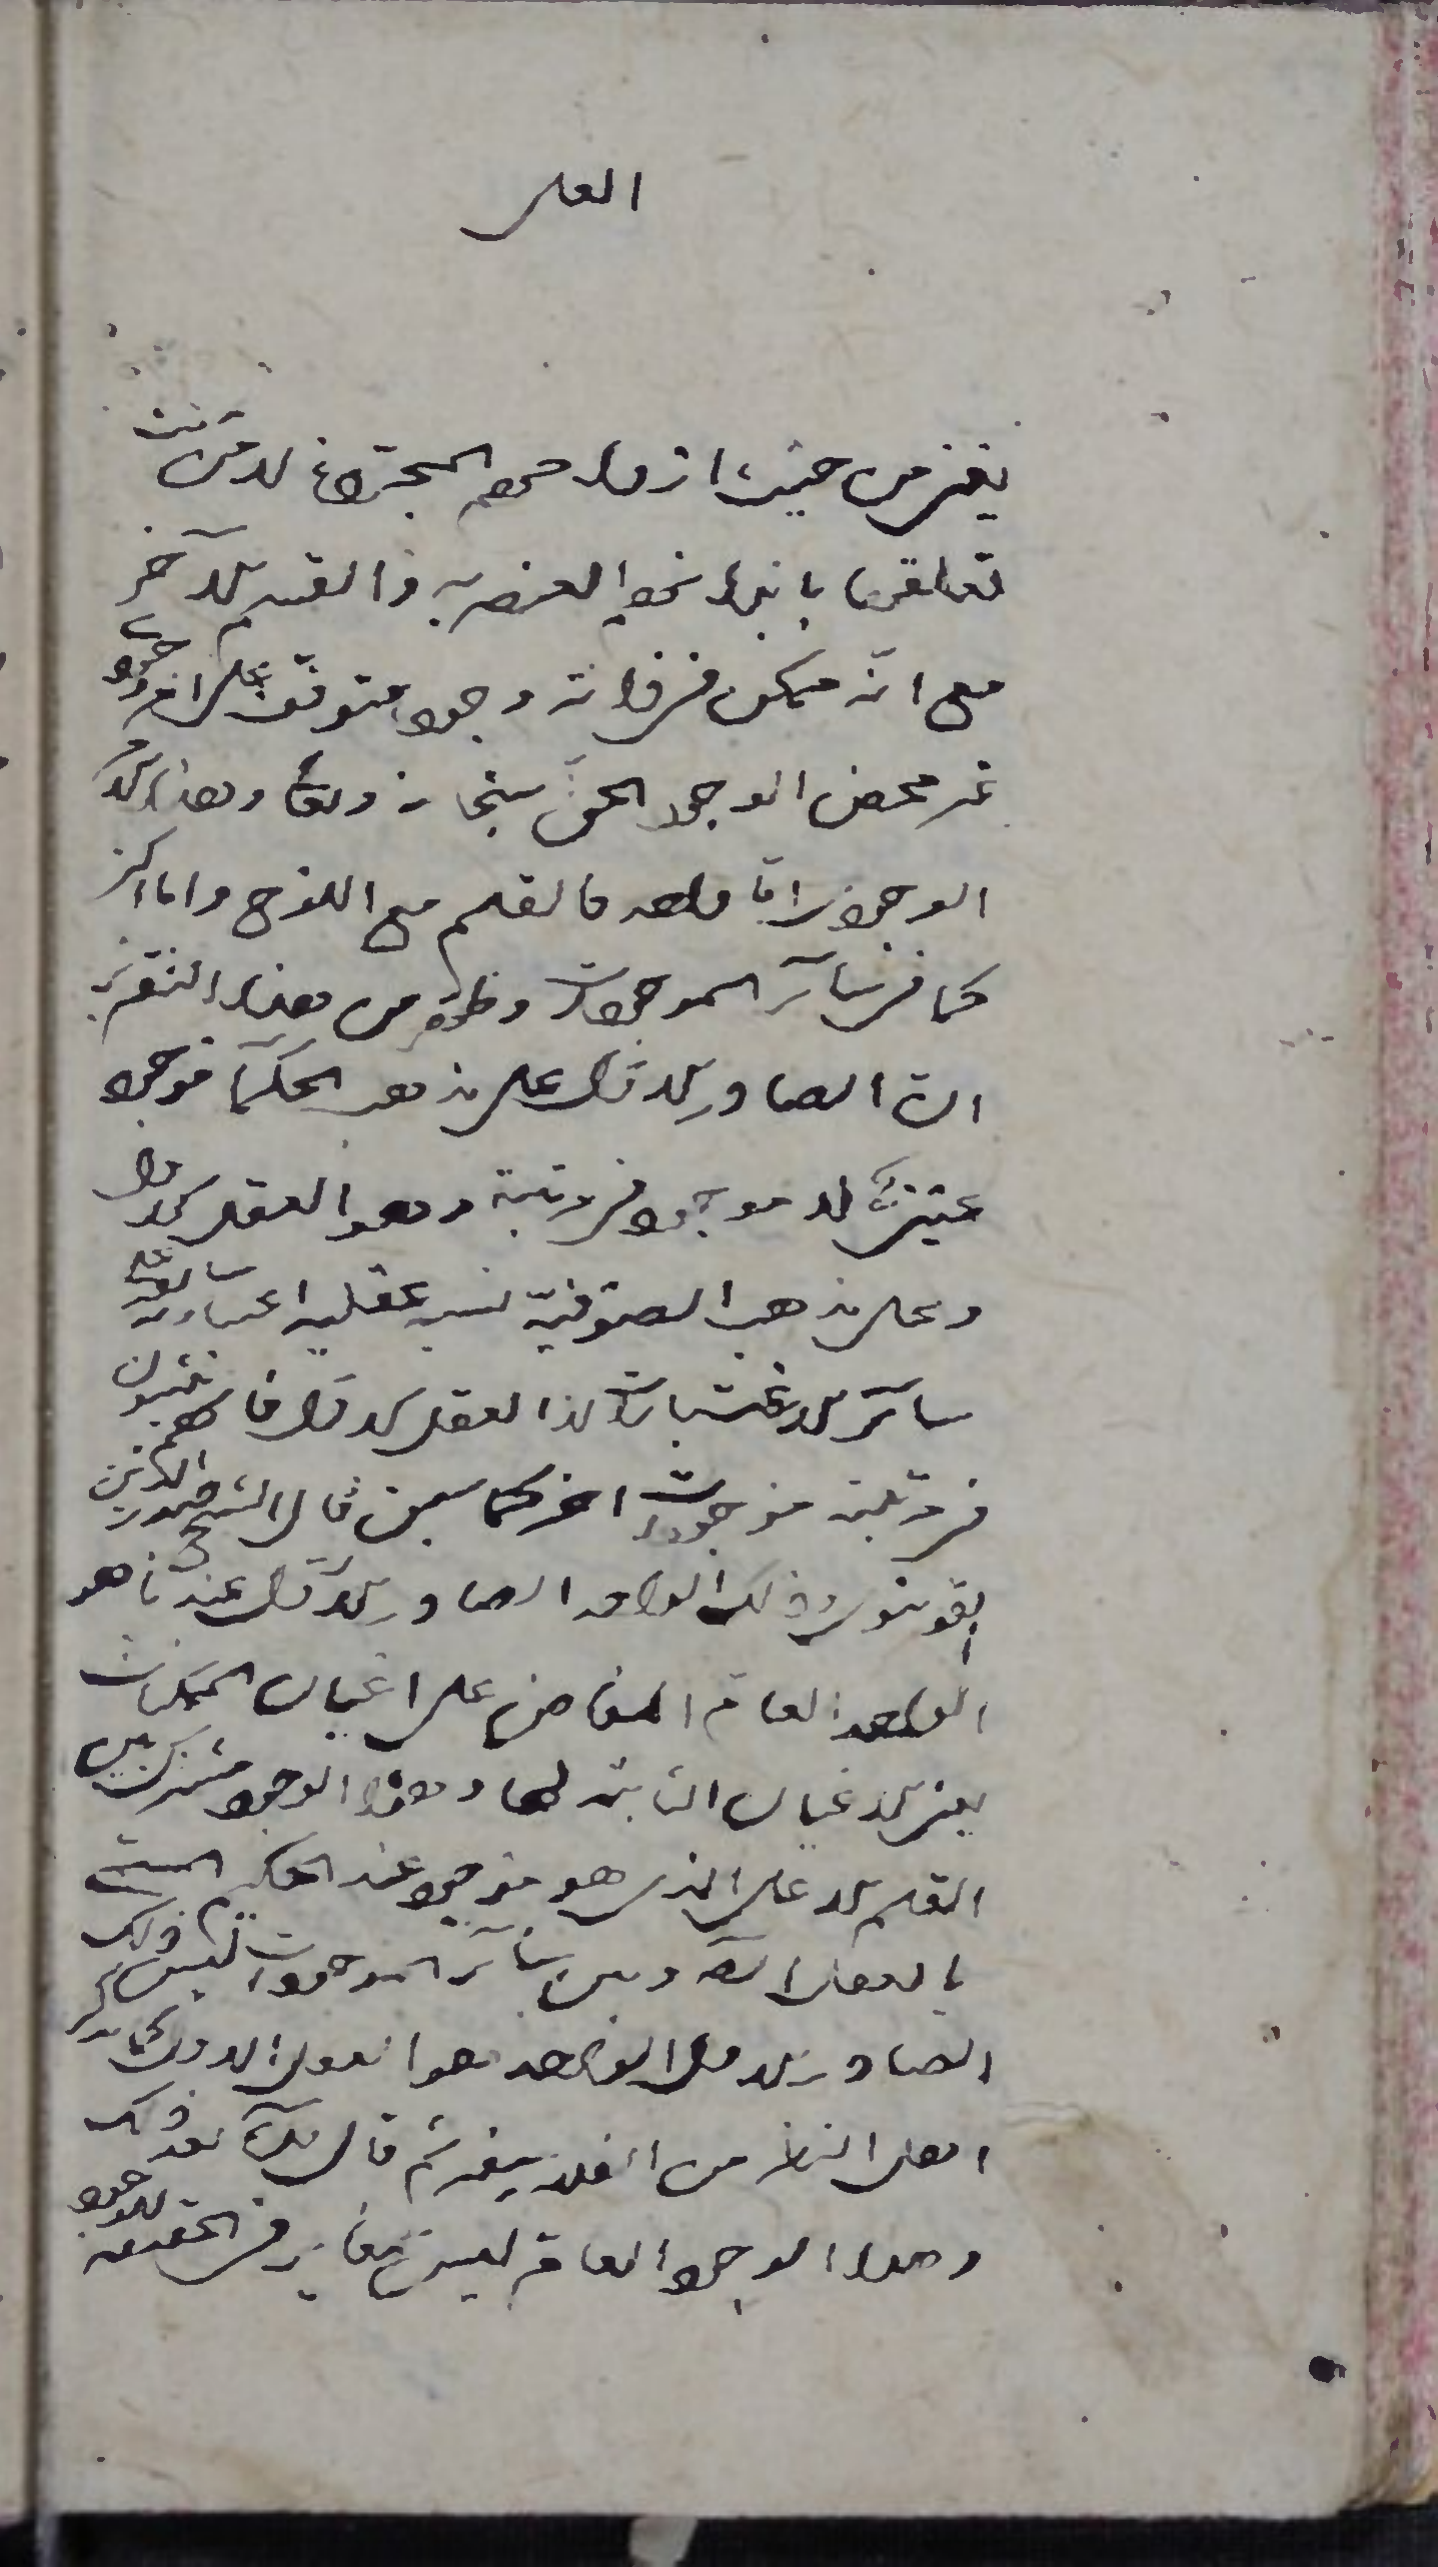 العلى
يعنى من حيث ارواحهم المجردة لا من حيث
تعلقها بابدانهم العنصرية والقسم الآخر
مع انه ممكن فى ذاته وجوده متوقف على امر وجودى
غير محض الوجود الحق سبحانه وتعالى وهذا الامر
الوجودى اما واحد كالقلم مع اللوح واما اكثر
كما فى سائر الموجودات وظهر من هذا التقرير
ان الصادر الاول على مذهب الحكماء موجود
عينى لا موجود فى رتبته وهو العقل الاول
وعلى مذهب الصوفية نسبة عقلية اعتبارية سابقة على
سائر الاعتبارات لا العقل الاول فانهم يثبتون
فى رتبته موجودات اخر كما سبق قال الشيخ صدر الدين
القونوى وذلك الواحد الصادر الاول عندنا هو
الواحد العام المفاض على اعيان الممكنات
يعنى الاعيان الثابتة لها وهذا الوجود مشترك بين
القلم الاعلى الذى هو موجود عند الحكيم المسمى
بالعقل الاول وبين سائر الموجودات ليس ذلك
الصادر الاول الواحد هو العقل الاول كما يذكره
اهل النظر من الفلاسفة ثم قال بعد ذلك
وهذا الوجود العام ليس بمغاير فى الحقيقة للوجود